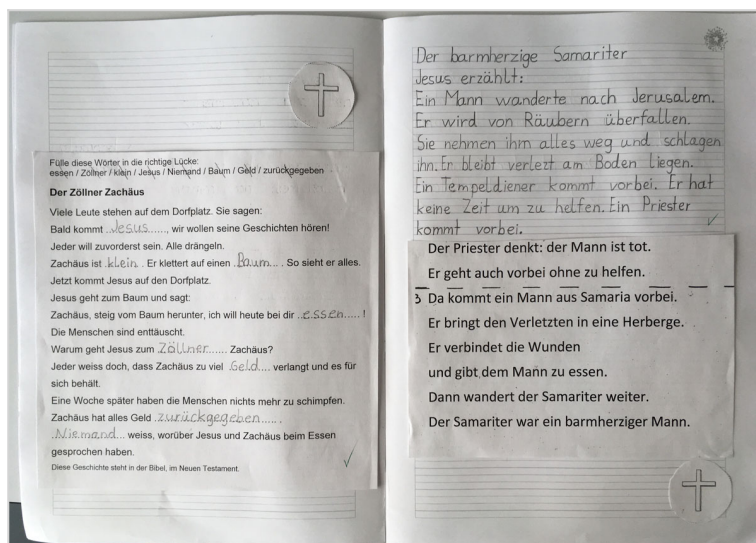 Fülle diese Wörter in die richtige Lücke:
essen / Zöllner / klein / Jesus / Niemand / Baum / Geld / zurückgegeben
Der Zöllner Zachäus
Viele Leute stehen auf dem Dorfplatz. Sie sagen:
Bald kommt ..Jesus......, wir wollen seine Geschichten hören!
Jeder will zuvorderst sein. Alle drängeln.
Zachäus ist .klein. . Er klettert auf einen .Baum... . So sieht er alles.
Jetzt kommt Jesus auf den Dorfplatz.
Jesus geht zum Baum und sagt:
Zachäus, steig vom Baum herunter, ich will heute bei dir ..essen..... !
Die Menschen sind enttäuscht.
Warum geht Jesus zum .Zöllner...... Zachäus?
Jeder weiss doch, dass Zachäus zu viel .Geld.... verlangt und es für
sich behält.
Eine Woche später haben die Menschen nichts mehr zu schimpfen.
Zachäus hat alles Geld .zurückgegeben...... .
.Niemand... weiss, worüber Jesus und Zachäus beim Essen
gesprochen haben.
Diese Geschichte steht in der Bibel, im Neuen Testament.
Der barmherzige Samariter
Jesus erzählt:
Ein Mann wanderte nach Jerusalem.
Er wird von Räubern überfallen.
Sie nehmen ihm alles weg und schlagen
ihn. Er bleibt verlezt am Boden liegen.
Ein Tempeldiener kommt vorbei. Er hat
keine Zeit um zu helfen. Ein Priester
kommt vorbei.
Der Priester denkt: der Mann ist tot.
Er geht auch vorbei ohne zu helfen.
3 Da kommt ein Mann aus Samaria vorbei.
Er bringt den Verletzten in eine Herberge.
Er verbindet die Wunden
und gibt dem Mann zu essen.
Dann wandert der Samariter weiter.
Der Samariter war ein barmherziger Mann.